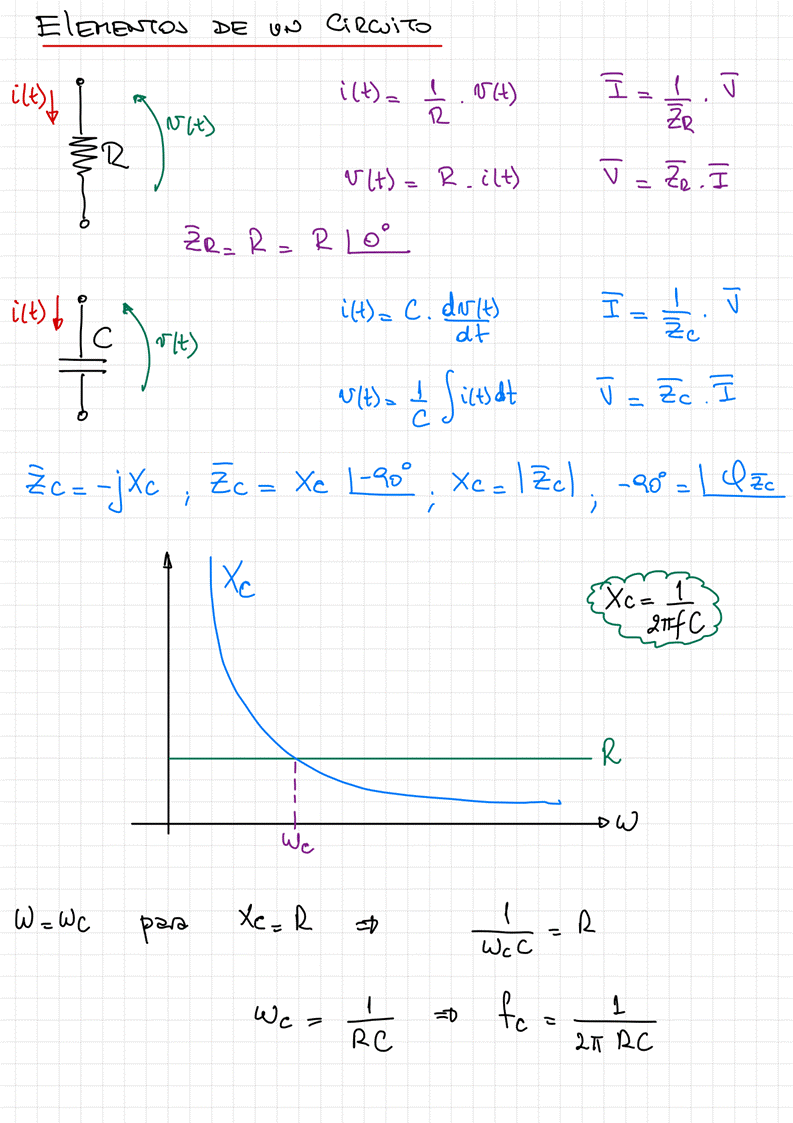 ELEMENTOS DE UN CIRCUITO
i(t) v(t) R
i(t) = 1/R . v(t)
I̅ = 1/Z̅R . V̅
v(t) = R . i(t)
V̅ = Z̅R . I̅
Z̅R = R = R ∟0°
i(t) C v(t)
i(t) = C . dv(t)/dt
I̅ = 1/Z̅C . V̅
v(t) = 1/C ∫ i(t) dt
V̅ = Z̅C . I̅
Z̅C = -jXC ; Z̅C = XC ∟-90° ; XC = |Z̅C| ; -90° = ∟φZ̅C
XC
XC = 1/2πfC
R
ωC
ω
ω = ωC para XC = R ⇒ 1/ωCC = R
ωC = 1/RC ⇒ fC = 1/2π RC